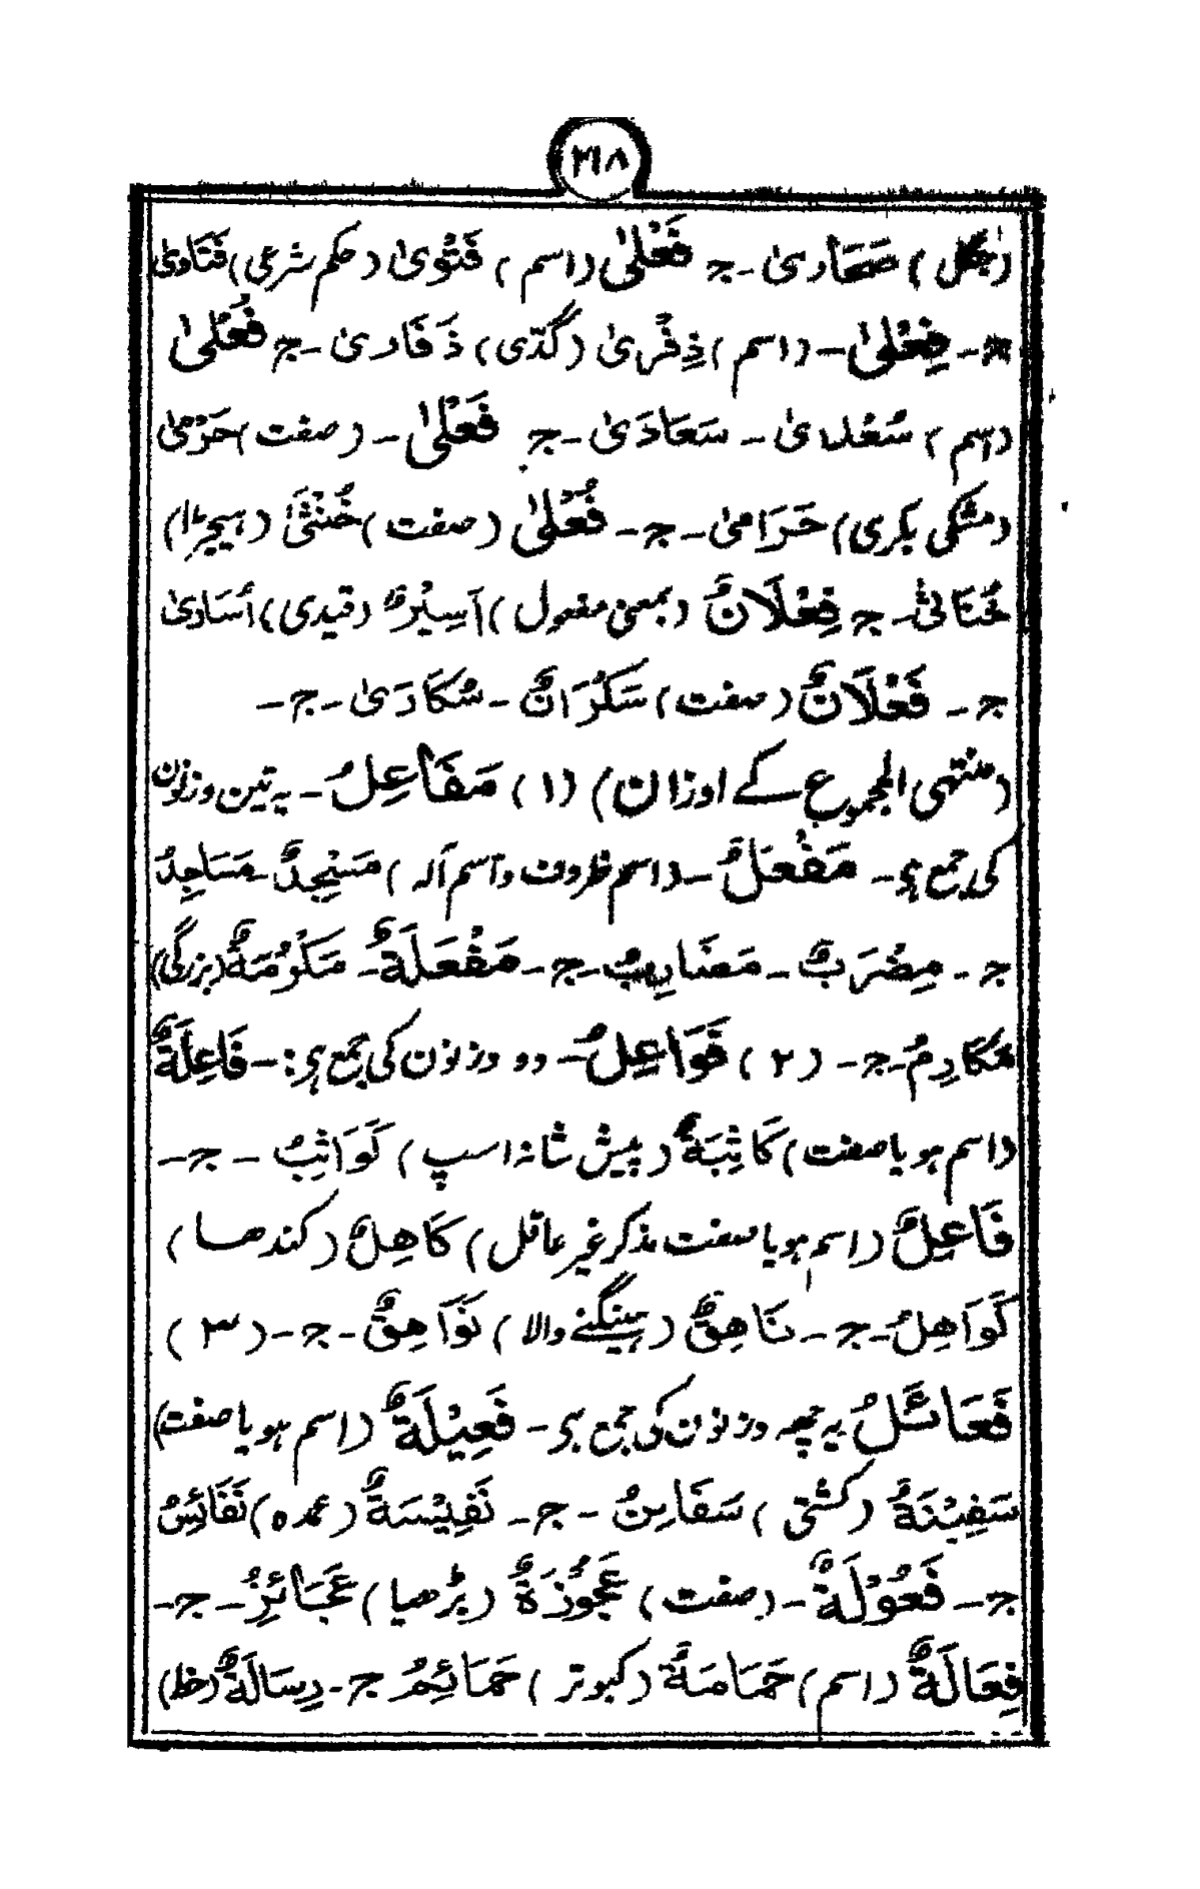 ۲۱۸
(جنگل) صَحَاریٰ۔ ج فَعْلیٰ (اسم) فَتْویٰ (حکم شرعی) فَتَاویٰ
ج۔ فِعْلیٰ۔ (اسم) ذِفْریٰ (گدّی) ذَفَاریٰ۔ ج فُعْلیٰ
(اسم) سُعْدیٰ۔ سَعَادَیٰ۔ ج فَعْلیٰ۔ (صفت) حَرْمیٰ
(مشکی بکری) حَرَامیٰ۔ ج۔ فُعْلیٰ (صفت) خُنْثیٰ (ہیجڑا)
خُنَاثیٰ۔ ج فِعْلَانٌ (بمعنی مفعول) اَسِیْرٌ (قیدی) اُسَاریٰ
ج۔ فَعْلَانٌ (صفت) سَکْرَانٌ۔ سُکَارَیٰ۔ ج۔
(منتہی الجموع کے اوزان) (۱) مَفَاعِلُ۔ یہ تین وزنوں
کی جمع ہے۔ مَفْعَلٌ۔ (اسم ظروف و اسم آلہ) مَسْجِدٌ۔ مَسَاجِدُ
ج۔ مِضْرَبٌ۔ مَضَارِبُ۔ ج۔ مَفْعَلَةٌ۔ مَکْرُمَةٌ (بزرگی)
مَکَارِمُ۔ ج۔ (۲) فَوَاعِلُ۔ دو وزنوں کی جمع ہے:۔ فَاعِلَةٌ
(اسم ہو یا صفت) کَاثِبَةٌ (پیش شانہ اسپ) کَوَاثِبُ۔ ج۔
فَاعِلٌ (اسم ہو یا صفت مذکر غیر عاقل) کَاهِلٌ (کندھا)
کَوَاهِلُ۔ ج۔ نَاهِقٌ (ہینگنے والا) نَوَاهِقُ۔ ج۔ (۳)
فَعَائِلُ یہ چھ وزنوں کی جمع ہے۔ فَعِیْلَةٌ (اسم ہو یا صفت)
سَفِیْنَةٌ (کشتی) سَفَائِنُ۔ ج۔ نَفِیْسَةٌ (عمدہ) نَفَائِسُ
ج۔ فَعُوْلَةٌ۔ (صفت) عَجُوْزَةٌ (بڑھیا) عَجَائِزُ۔ ج۔
فِعَالَةٌ (اسم) حَمَامَةٌ (کبوتر) حَمَائِمُ ج۔ رِسَالَةٌ (خط)